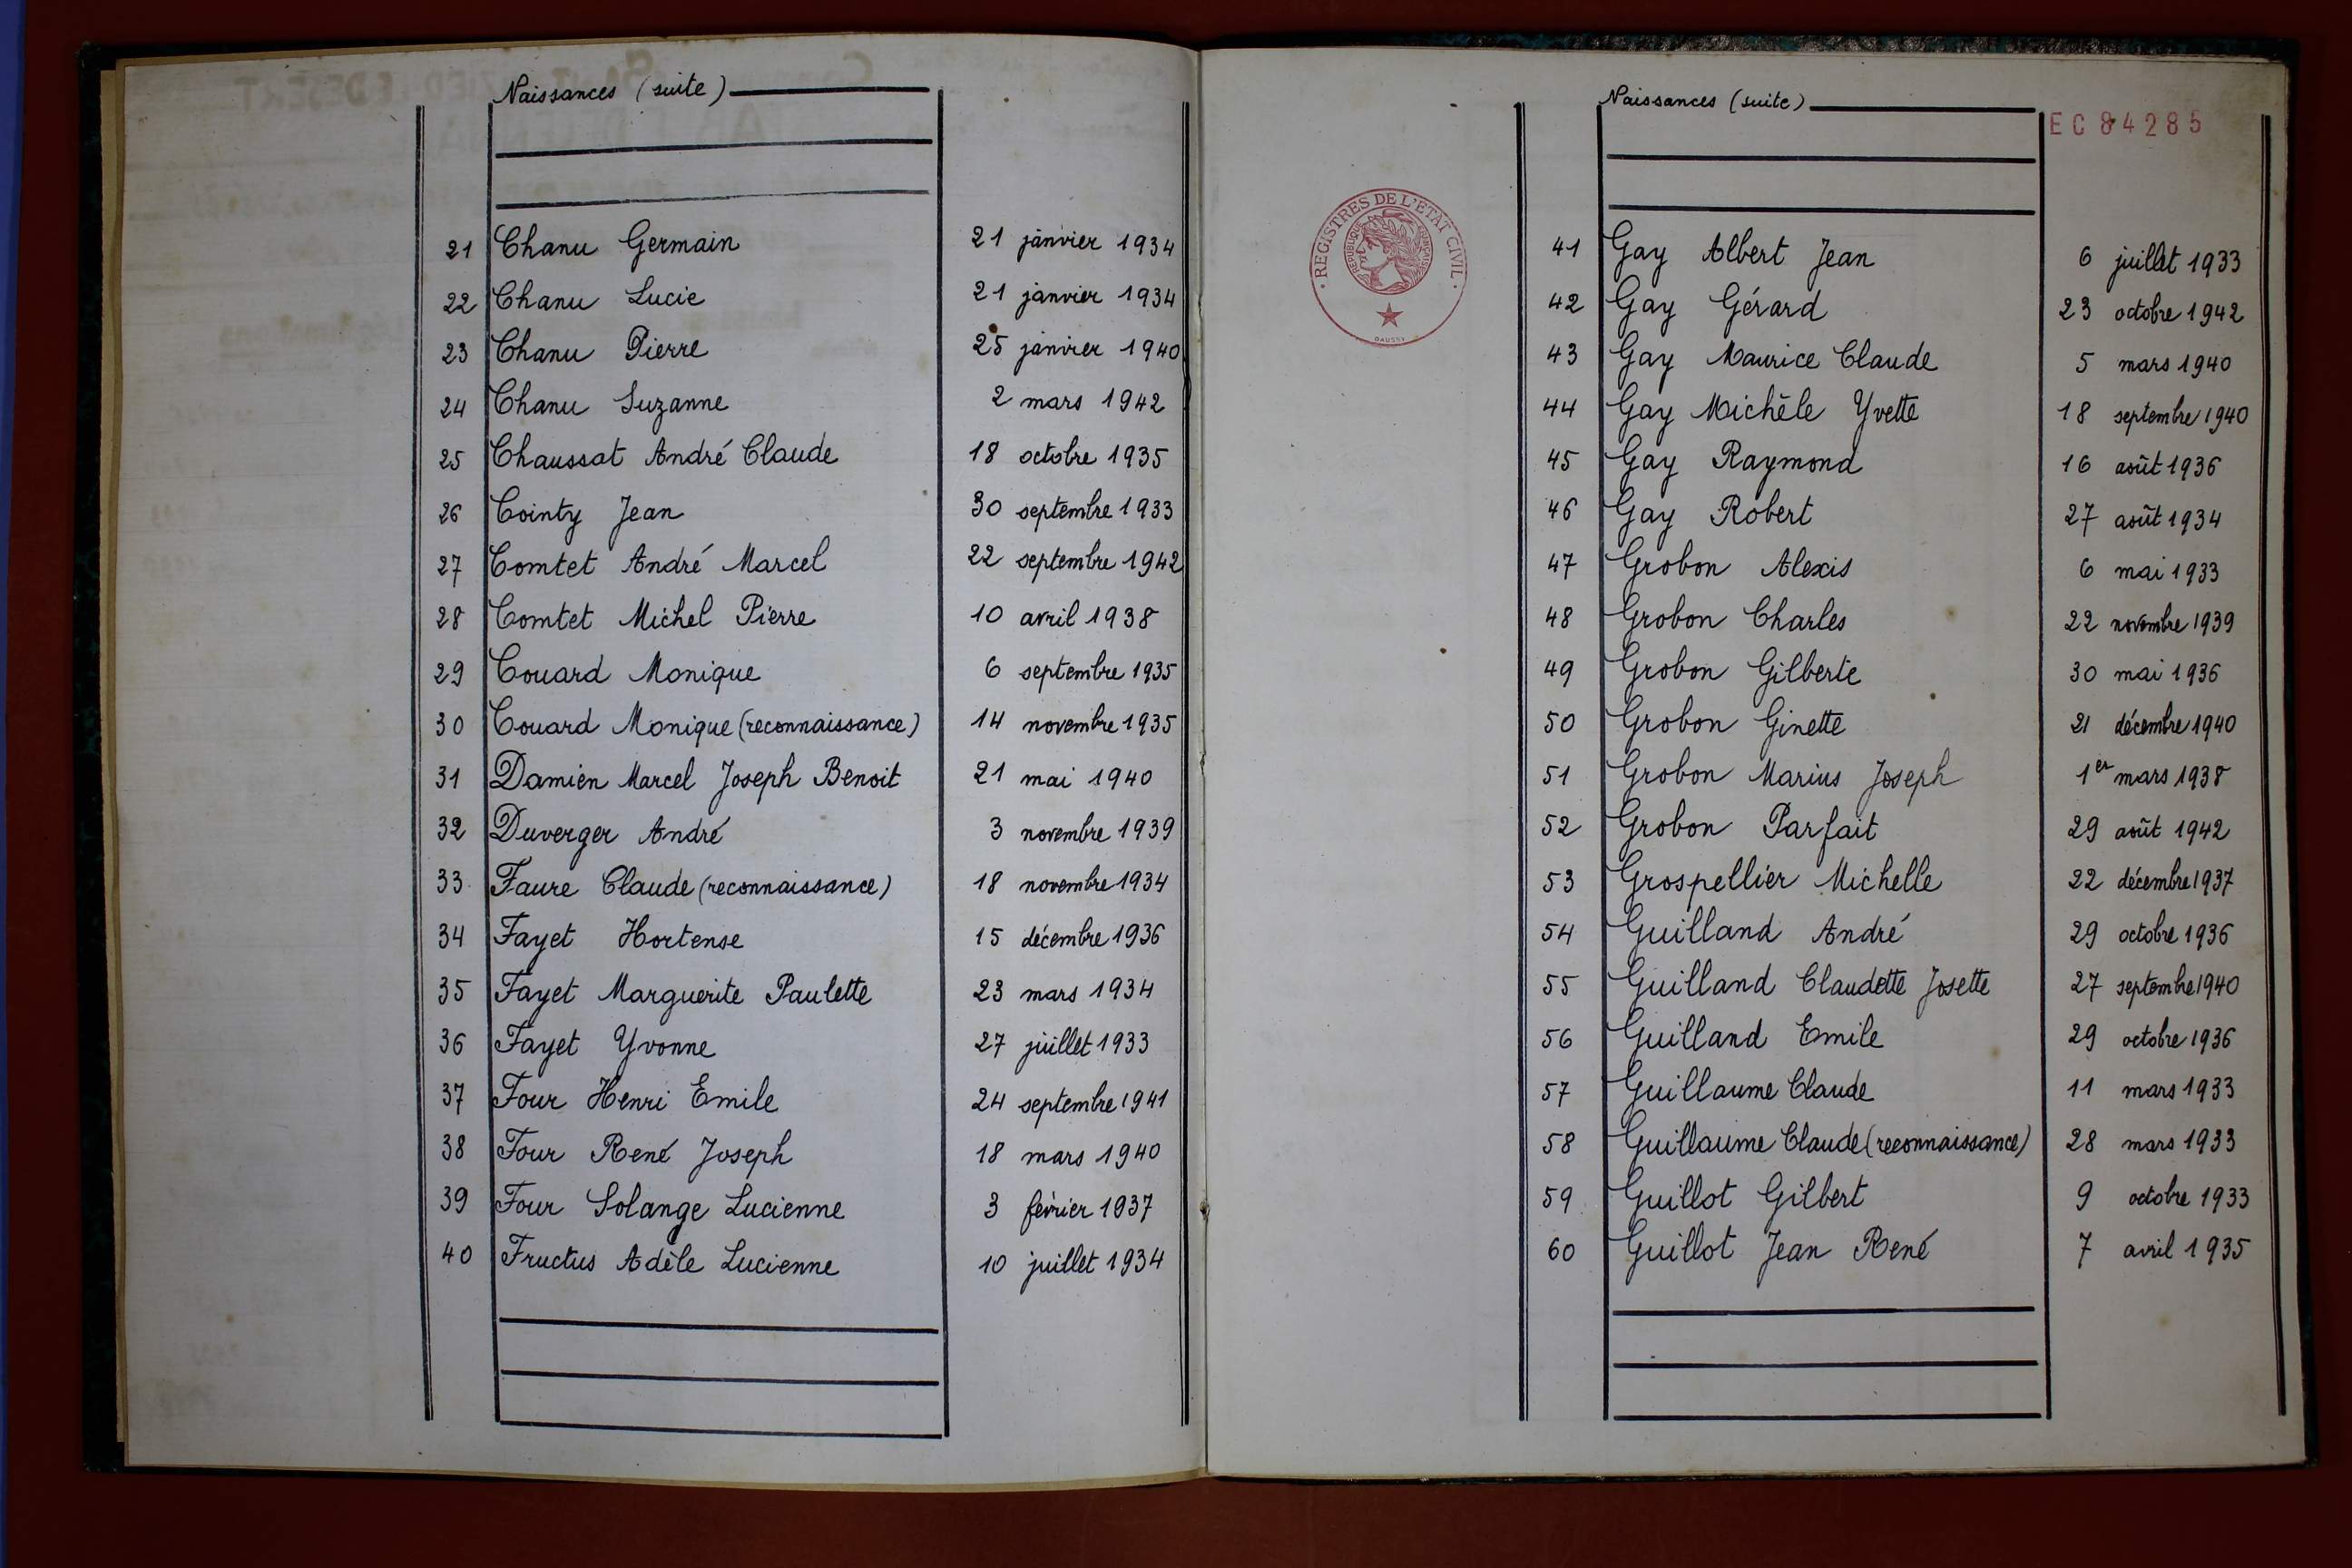 Naissances (suite)
21 Chanu Germain 21 janvier 1934
22 Chanu Lucie 21 janvier 1934
23 Chanu Pierre 25 janvier 1940
24 Chanu Suzanne 2 mars 1942
25 Chaussat André Claude 18 octobre 1935
26 Cointy Jean 30 septembre 1933
27 Comtet André Marcel 22 septembre 1942
28 Comtet Michel Pierre 10 avril 1938
29 Couard Monique 6 septembre 1935
30 Couard Monique (reconnaissance) 14 novembre 1935
31 Damien Marcel Joseph Benoit 21 mai 1940
32 Duverger André 3 novembre 1939
33 Faure Claude (reconnaissance) 18 novembre 1934
34 Fayet Hortense 15 décembre 1936
35 Fayet Marguerite Paulette 23 mars 1934
36 Fayet Yvonne 27 juillet 1933
37 Four Henri Emile 24 septembre 1941
38 Four René Joseph 18 mars 1940
39 Four Solange Lucienne 3 février 1937
40 Fructus Adèle Lucienne 10 juillet 1934
Naissances (suite)
EC 84285
REGISTRES DE L'ETAT CIVIL
REPUBLIQUE FRANCAISE
DAUSSY
41 Gay Albert Jean 6 juillet 1933
42 Gay Gérard 23 octobre 1942
43 Gay Maurice Claude 5 mars 1940
44 Gay Michèle Yvette 18 septembre 1940
45 Gay Raymond 16 août 1936
46 Gay Robert 27 août 1934
47 Grobon Alexis 6 mai 1933
48 Grobon Charles 22 novembre 1939
49 Grobon Gilberte 30 mai 1936
50 Grobon Ginette 21 décembre 1940
51 Grobon Marius Joseph 1er mars 1938
52 Grobon Parfait 29 août 1942
53 Grospellier Michelle 22 décembre 1937
54 Guilland André 29 octobre 1936
55 Guilland Claudette Josette 27 septembre 1940
56 Guilland Emile 29 octobre 1936
57 Guillaume Claude 11 mars 1933
58 Guillaume Claude (reconnaissance) 28 mars 1933
59 Guillot Gilbert 9 octobre 1933
60 Guillot Jean René 7 avril 1935